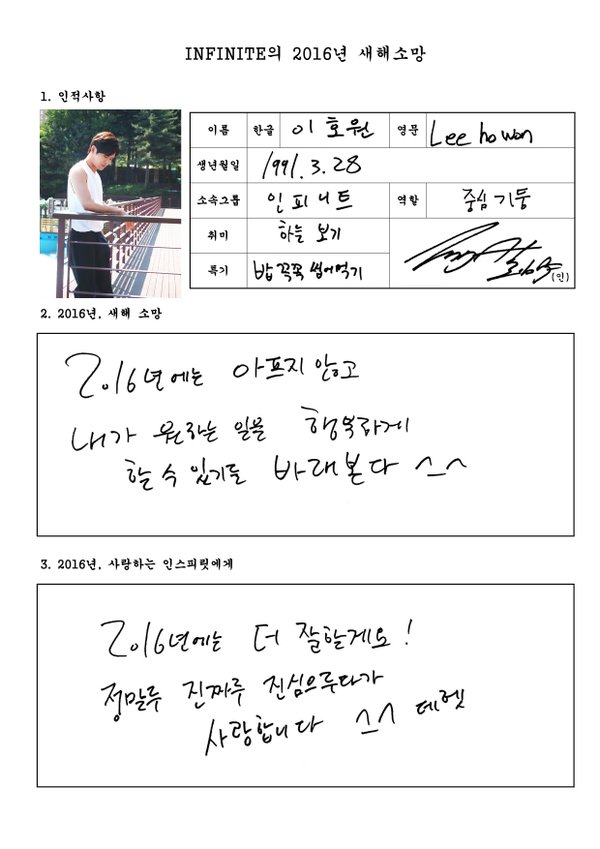 INFINITE의 2016년 새해소망
1. 인적사항
이름 한글 이호원 영문 Lee ho won
생년월일 1991. 3. 28
소속그룹 인피니트 역할 중심 기둥
취미 하늘 보기
특기 밥 꼭꼭 씹어먹기 (인)
2. 2016년, 새해 소망
2016년에는 아프지 않고
내가 원하는 일을 행복하게
할 수 있기를 바래본다 ^^
3. 2016년, 사랑하는 인스피릿에게
2016년에는 더 잘할게요!
정말루 진짜루 진심으루다가
사랑합니다 ^^ 데헷